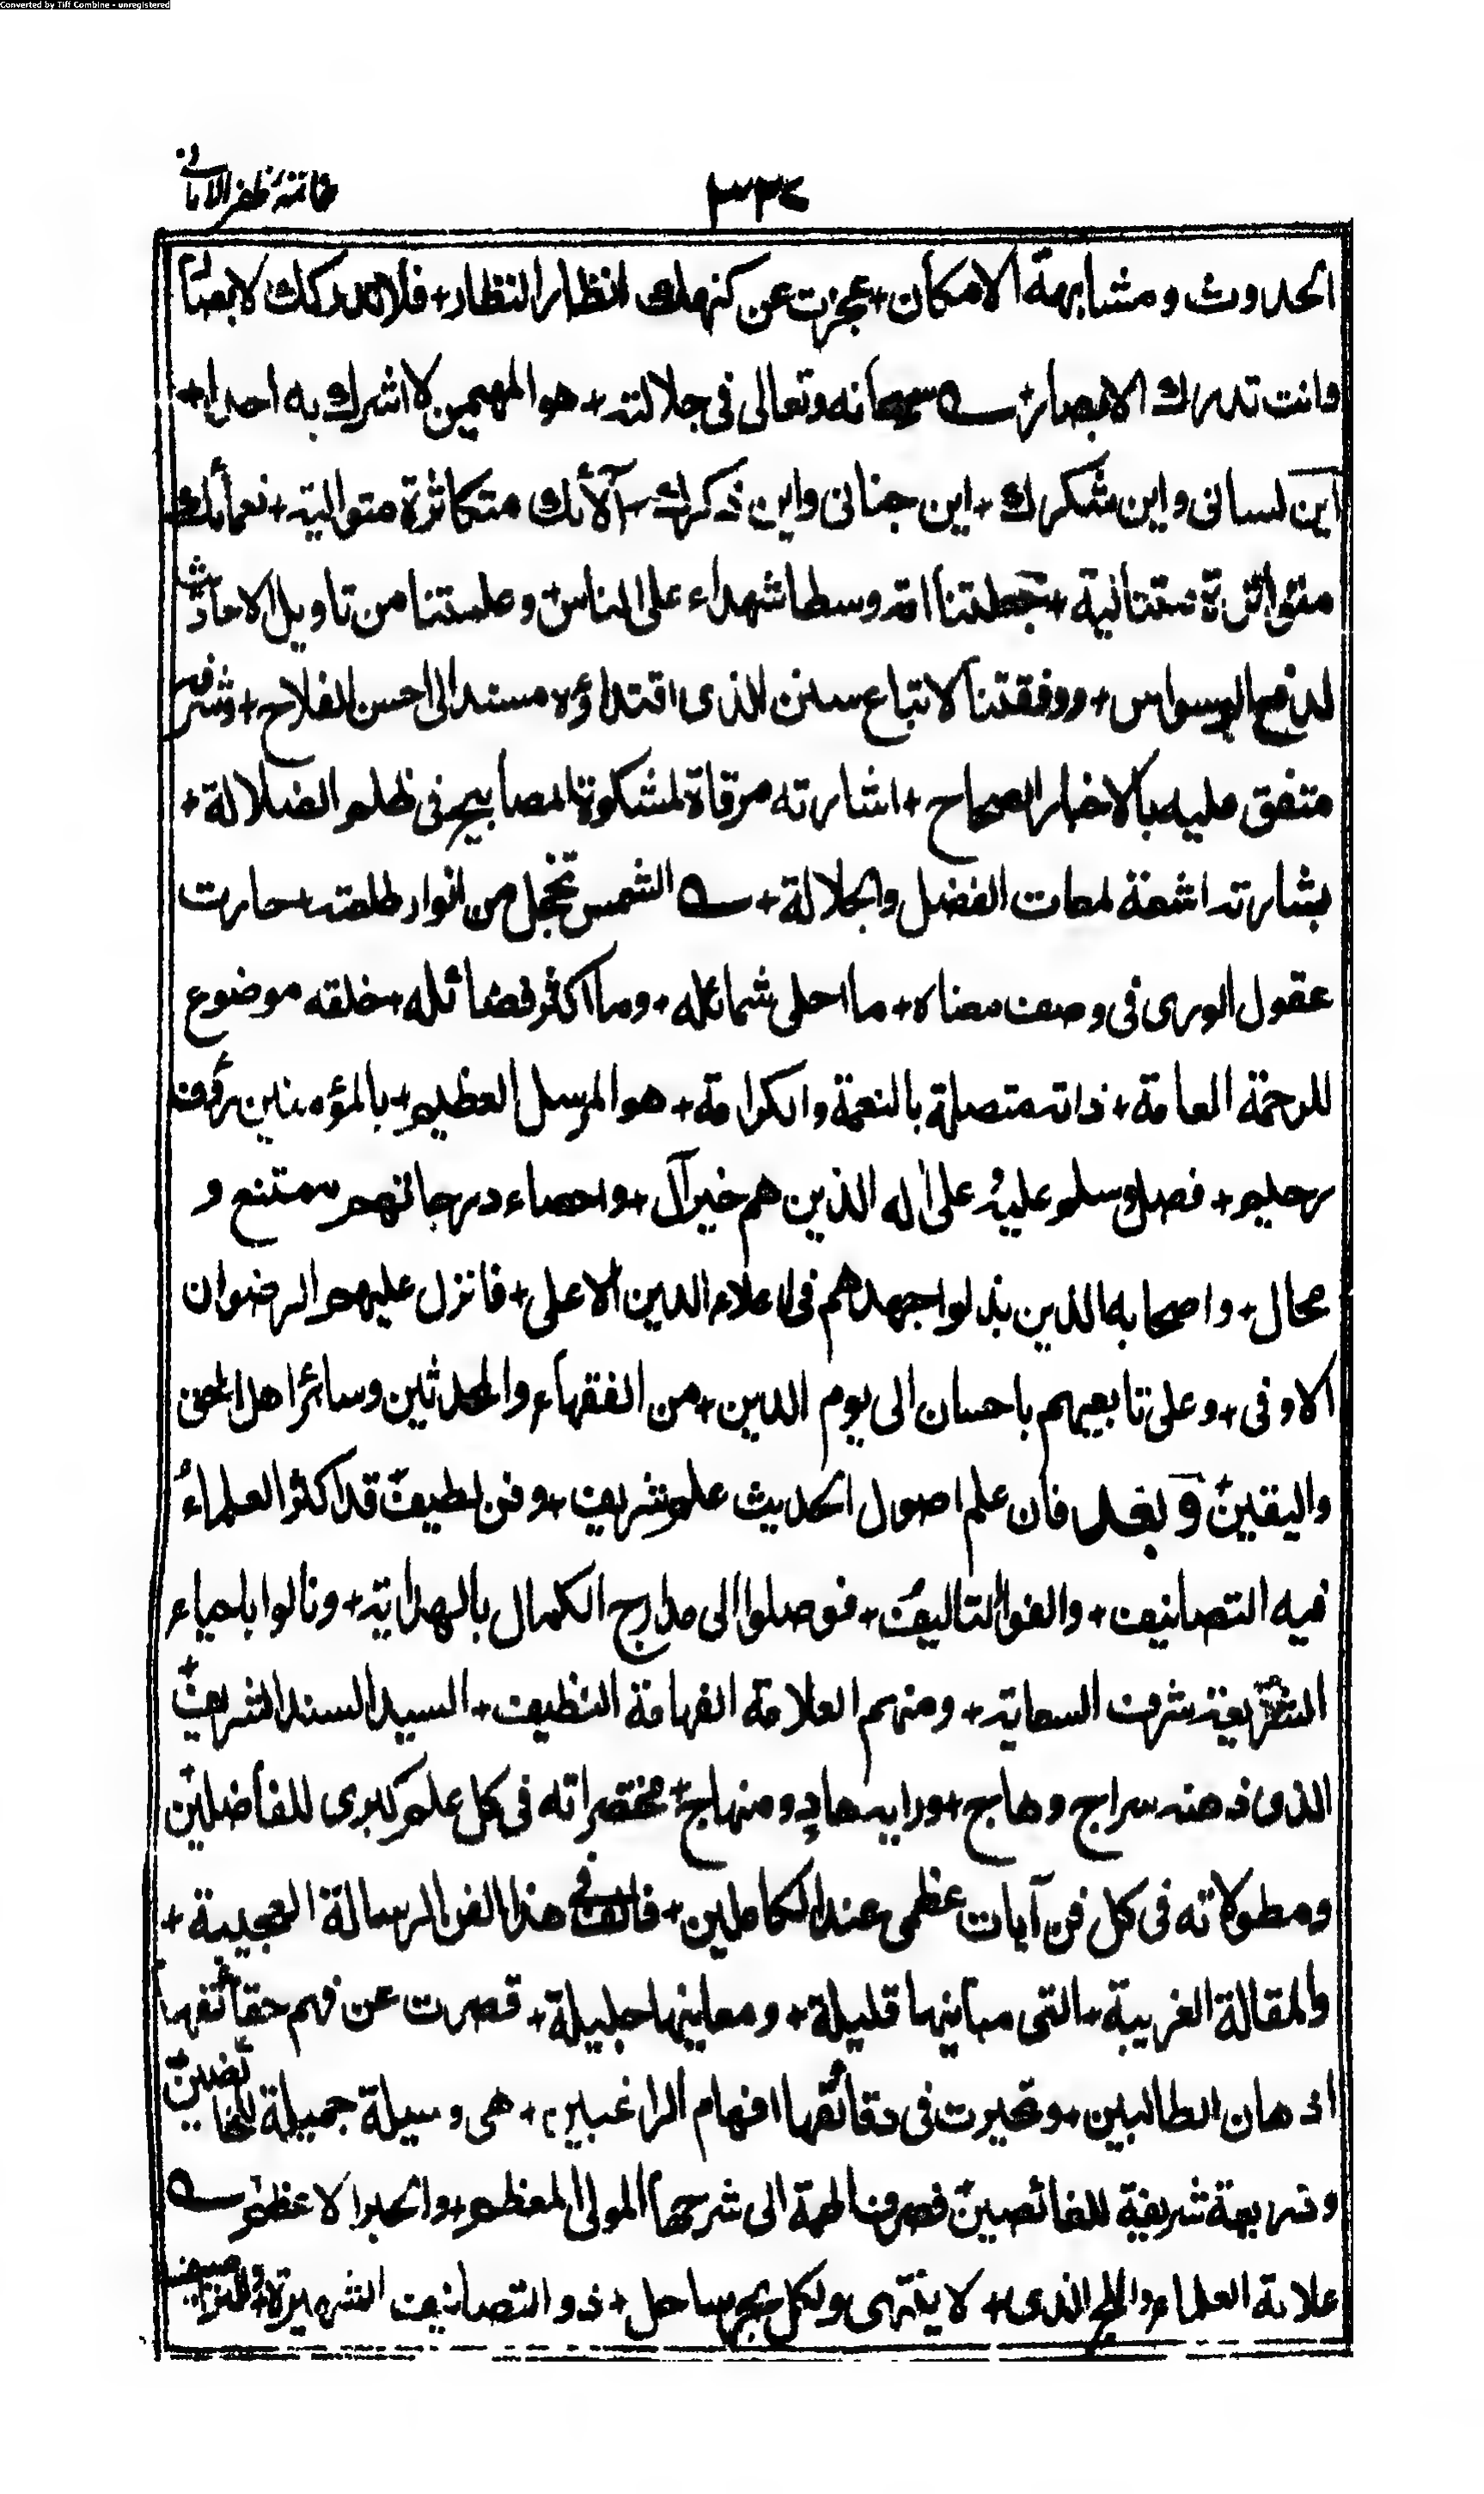 Converted by Tiff Combine - unregistered
٣٣٤
خاتمة ظفر الاماني
الحدوث ومشابهة الامكان + عجزت عن كنهك انظار النظار + فلا تدركك لابصار
وانت تدرك الابصار + سبحانه وتعالى فى جلالته + هو المهيمن لا اشرك به احدا +
اين لسانى واين شكرك + اين جنانى واين ذكرك آلائك متكاثرة متوالية + نعمائك
متواترة + جعلتنا امة وسطا شهداء على الناس + وعلمتنا من تاويل الاحاديث
لدفع الوسواس + ووفقتنا لاتباع سنن الذى اقتداؤه مسند الى احسن الفلاح + وشرف
متفق عليه بالاخبار الصحاح + اشارته مرقاة لمشكوة المصابيح فى ظلم الضلالة +
بشارته اشعة لمعات الفضل والجلالة + الشمس تخجل من انوار طلعته + حارت
عقول الورى فى وصف معناه + ما احلى شمائله + وما اكثر فضائله + خلقه موضوع
للرحمة العامة + ذاته متصلة بالنعمة والكرامة + هو المرسل العظيم + بالمؤمنين رؤف
رحيم + فصل وسلم عليه وعلى اله الذين هم خير آل + واحصاء درجاتهم ممتنع و
محال + واصحابه الذين بذلوا جهدهم فى اعلاء الدين الاعلى + فانزل عليهم الرضوان
الاوفى + وعلى تابعيهم باحسان الى يوم الدين + من الفقهاء والمحدثين وسائر اهل الحق
واليقين + وبعد فان علم اصول الحديث علم شريف + وفن لطيف قد اكثر العلماء
فيه التصانيف + والفوا التاليف + فوصلوا الى مدارج الكمال بالهداية + ونالوا باحياء
الشريعة شرف السعاية + ومنهم العلامة الفهامة النظيف + السيد السند الشريف +
الذى ذهنه سراج وهاج + ورايه هاد ومنهاج + مختصراته فى كل علم كبرى للفاضلين +
ومطولاته فى كل فن آيات عظمى عند الكاملين + فالف فى هذا الفن الرسالة العجيبة +
والمقالة الغريبة + التى مبانيها قليلة + ومعانيها جليلة + قصرت عن فهم حقائقها
اذهان الطالبين + وتحيرت فى دقائقها افهام الراغبين + هى وسيلة جميلة للخائضين
وذريعة شريفة للغائصين فصرف الهمة الى شرحها المولى المعظم + والحبر الاعظم +
علامة العلماء والبحر الذى + لا ينتهى ولكل بحر ساحل + ذو التصانيف الشهيرة +